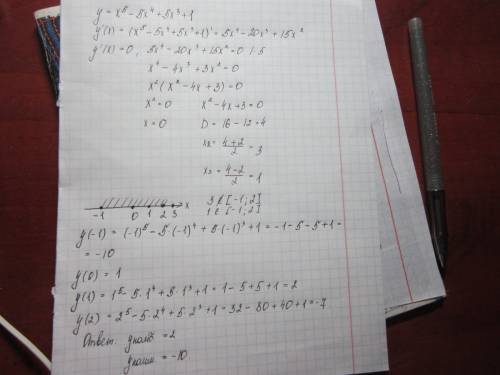 y = x⁵ - 5x⁴ + 5x³ + 1
y'(x) = (x⁵ - 5x⁴ + 5x³ + 1)' = 5x⁴ - 20x³ + 15x²
y'(x) = 0, 5x⁴ - 20x³ + 15x² = 0 | : 5
x⁴ - 4x³ + 3x² = 0
x²(x² - 4x + 3) = 0
x² = 0 x² - 4x + 3 = 0
x = 0 D = 16 - 12 = 4
x₁ = (4+2)/2 = 3
x₂ = (4-2)/2 = 1
-1 0 1 2 3 x
3 ∉ [-1; 2]
1 ∈ [-1; 2]
y(-1) = (-1)⁵ - 5·(-1)⁴ + 5·(-1)³ + 1 = -1 - 5 - 5 + 1 =
= -10
y(0) = 1
y(1) = 1⁵ - 5·1⁴ + 5·1³ + 1 = 1 - 5 + 5 + 1 = 2
y(2) = 2⁵ - 5·2⁴ + 5·2³ + 1 = 32 - 80 + 40 + 1 = -7
Ответ: yнаиб = 2
yнаим = -10